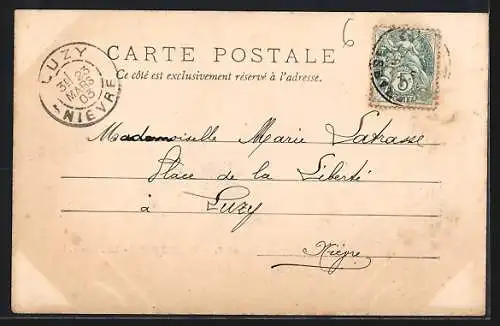 6
CARTE POSTALE
Ce côté est exclusivement réservé à l'adresse.
LUZY
3E 23
MARS
03
NIEVRE
5
Mademoiselle Marie Latrasse
Place de la Liberté
à Luzy
Nièvre